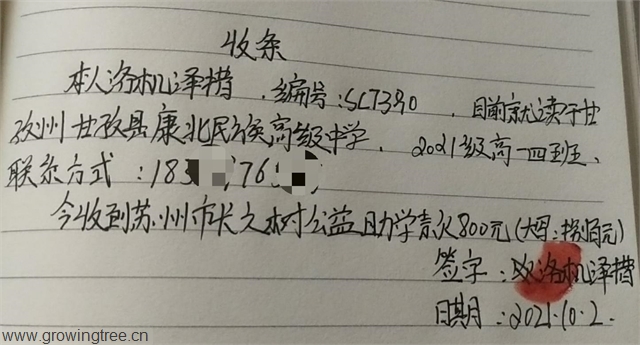 收条
本人洛机泽措，编号：SC7390，目前就读于甘
孜州甘孜县康北民族高级中学，2021级高一四班，
联系方式：18376
今收到苏州市长之树公益助学款800元(大写：捌佰元)
签字：洛机泽措
日期：2021.10.2.
www.growingtree.cn